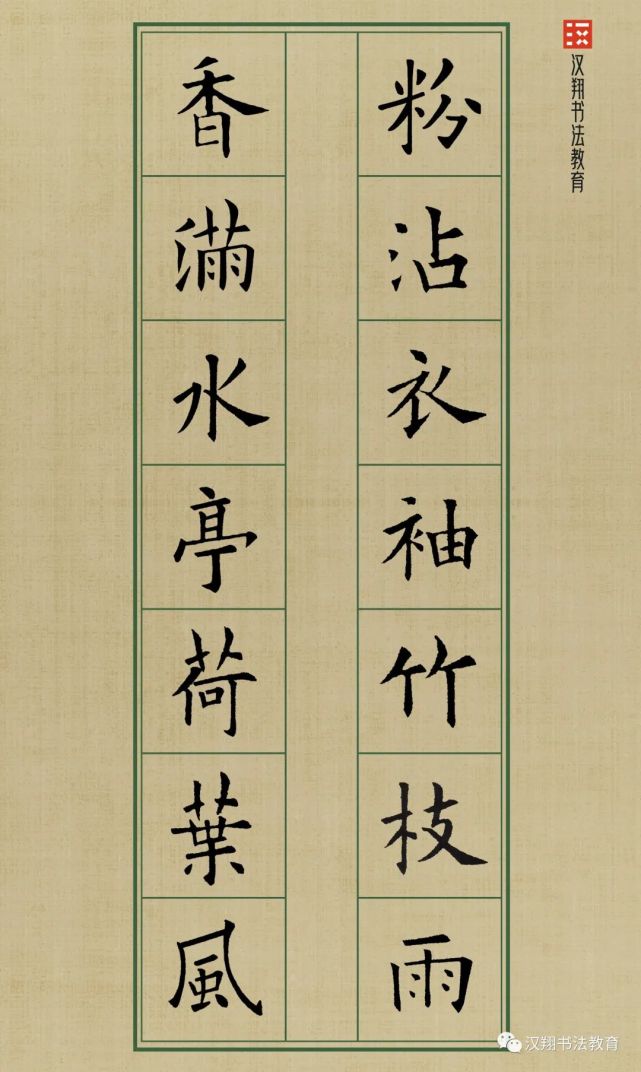 汉翔书法教育
粉沾衣袖竹枝雨
香滿水亭荷葉風
汉翔书法教育